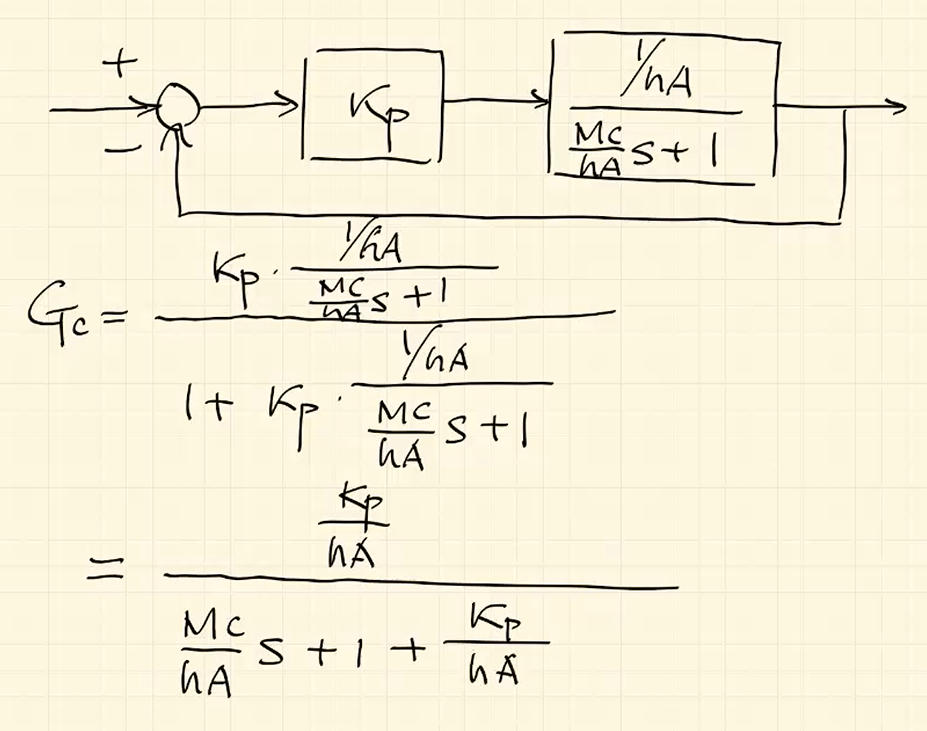 +
−
Kp
1/hA
MC/hA s + 1
Gc = (Kp · (1/hA)/(MC/hA s + 1)) / (1 + Kp · (1/hA)/(MC/hA s + 1))
= (Kp/hA) / (MC/hA s + 1 + Kp/hA)